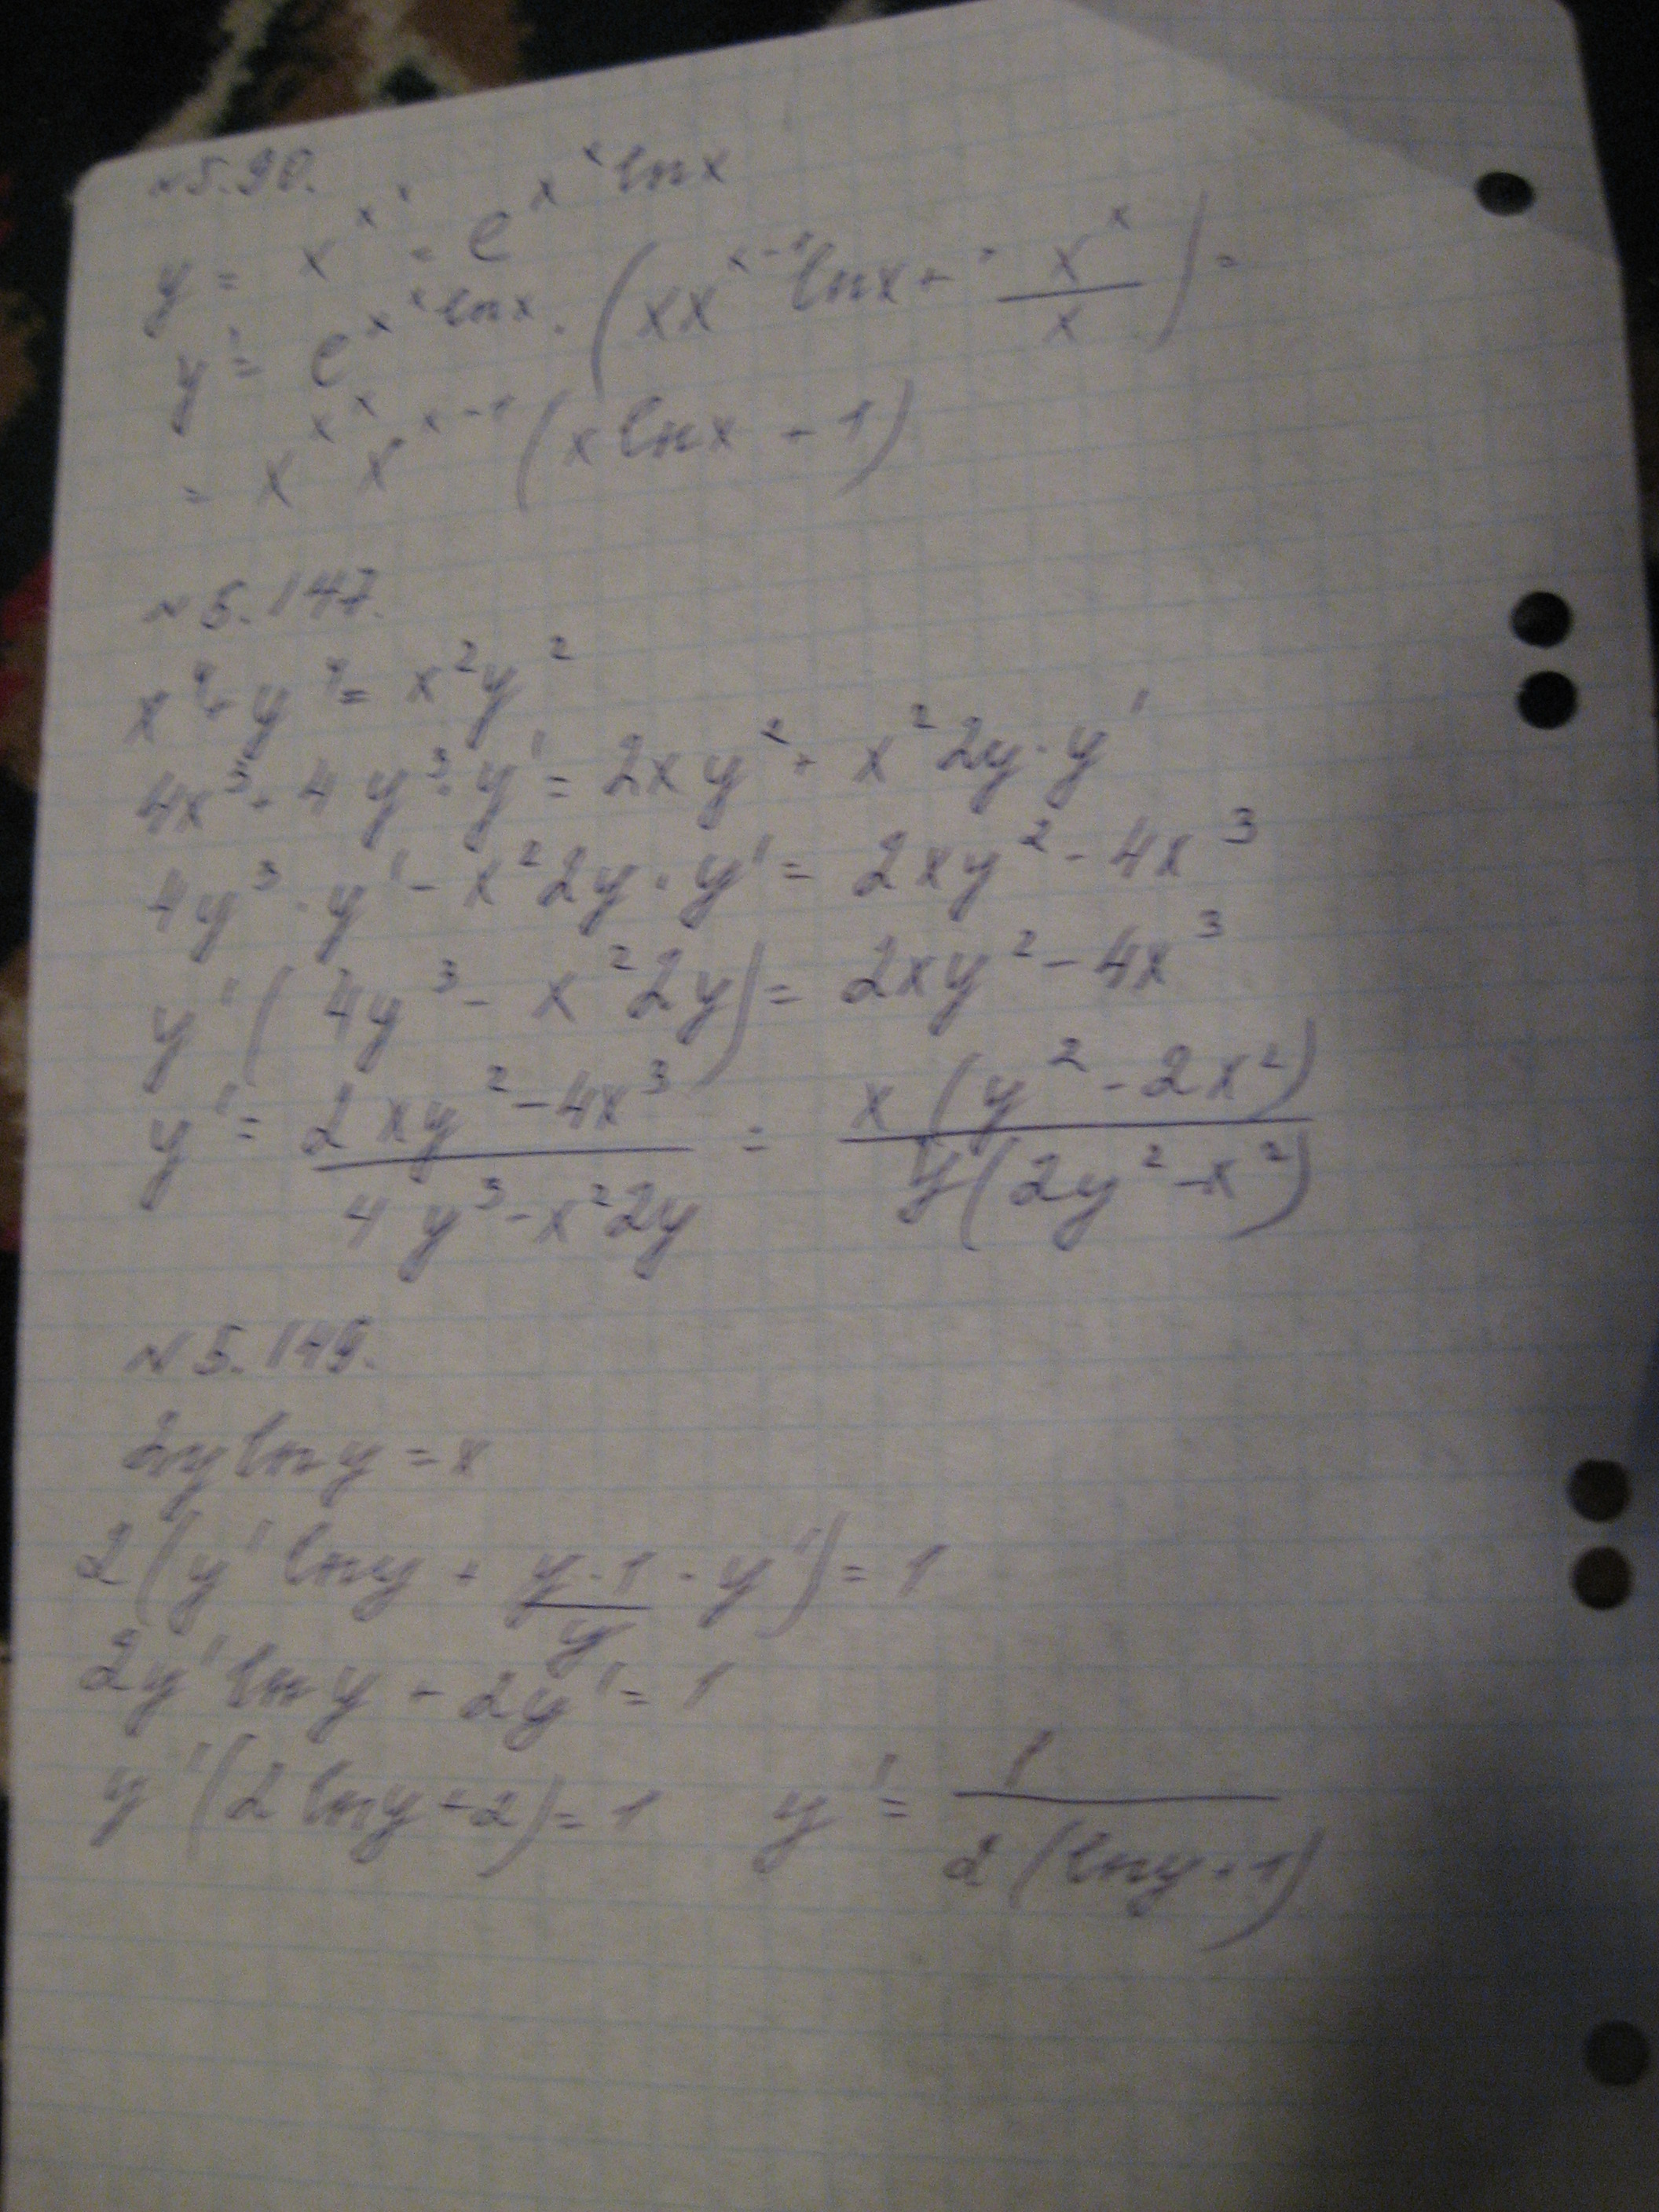 №5.90.
y = x^{x^x} = e^{x^x ln x}
y' = e^{x^x ln x} · (xx^{x-1} ln x + x^x/x) =
= x^{x^x} x^{x-1} (x ln x + 1)
№5.147.
x⁴ + y⁴ = x²y²
4x³ + 4y³ · y' = 2xy² + x²2y · y'
4y³ · y' - x²2y · y' = 2xy² - 4x³
y' (4y³ - x²2y) = 2xy² - 4x³
y' = (2xy² - 4x³)/(4y³ - x²2y) = x(y² - 2x²)/y(2y² - x²)
№5.149.
2y ln y = x
2(y' ln y + y·1/y · y') = 1
2y' ln y + 2y' = 1
y'(2 ln y + 2) = 1 y' = 1/2(ln y + 1)